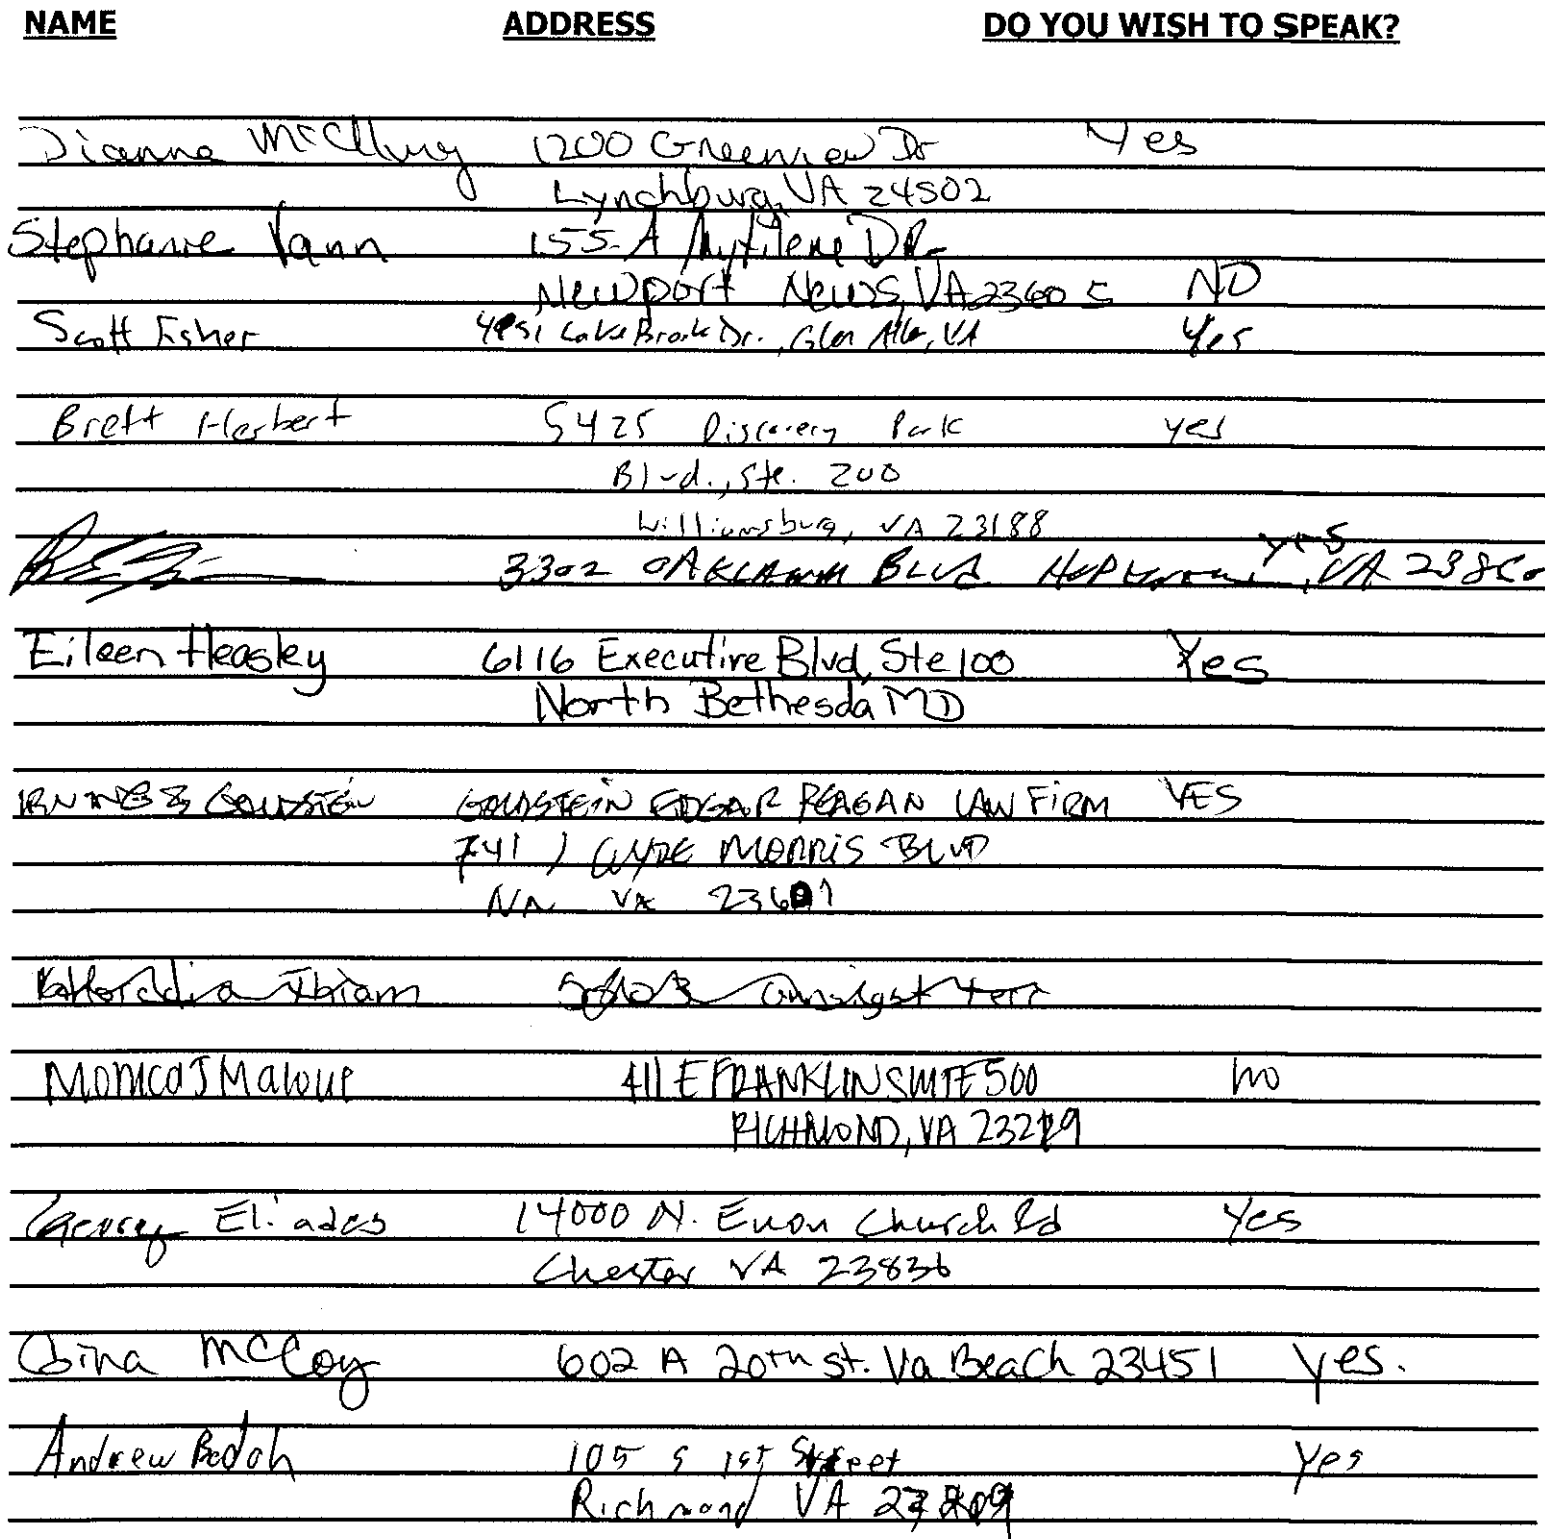 NAME ADDRESS DO YOU WISH TO SPEAK?
Dianne McClung 1200 Greenview Dr Yes
Lynchburg, VA 24502
Stephanie Vann 155-A DR.
Newport News, VA 23605 NO
Scott Fisher Lake Brook Dr., Glen Allen, VA Yes
Brett Herbert 5425 Discovery Park yes
Blvd., Ste. 200
Williamsburg, VA 23188
yes
3302 OAKLAWN BLVD. HOPEWELL, VA 23860
Eileen Heasley 6116 Executive Blvd, Ste 100 Yes
North Bethesda MD
GOLDSTEIN GOLDSTEIN EDGAR REAGAN LAW FIRM YES
741 J CLYDE MORRIS BLVD
NN VA 23601
Thiam terr
Monica J 411 E FRANKLIN SUITE 500 no
RICHMOND, VA 23219
George Eliades 14000 N. Enon Church Rd Yes
Chester VA 23836
Gina McCoy 602 A 20th st. Va Beach 23451 yes.
Andrew 105 S 1st Street Yes
Richmond VA